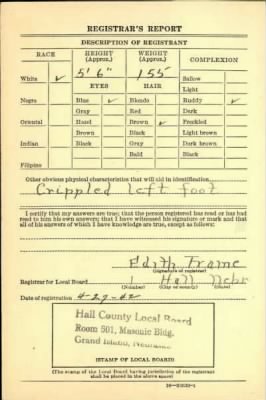 REGISTRAR'S REPORT
DESCRIPTION OF REGISTRANT
RACE HEIGHT (Approx.) WEIGHT (Approx.) COMPLEXION
5' 6" 155
White ✓ EYES HAIR Sallow
Light
Negro Blue ✓ Blonde Ruddy ✓
Gray Red Dark
Oriental Hazel Brown ✓ Freckled
Brown Black Light brown
Indian Black Gray Dark brown
Bald Black
Filipino
Other obvious physical characteristics that will aid in identification
Crippled left foot
I certify that my answers are true; that the person registered has read or has had
read to him his own answers; that I have witnessed his signature or mark and that
all of his answers of which I have knowledge are true, except as follows:
Edith Frame
(Signature of registrar)
Registrar for Local Board 1 Hall Nebr
(Number) (City or county) (State)
Date of registration 4-27-42
Hall County Local Board
Room 501, Masonic Bldg.
Grand Island, Nebraska
(STAMP OF LOCAL BOARD)
(The stamp of the Local Board having jurisdiction of the registrant
shall be placed in the above space)